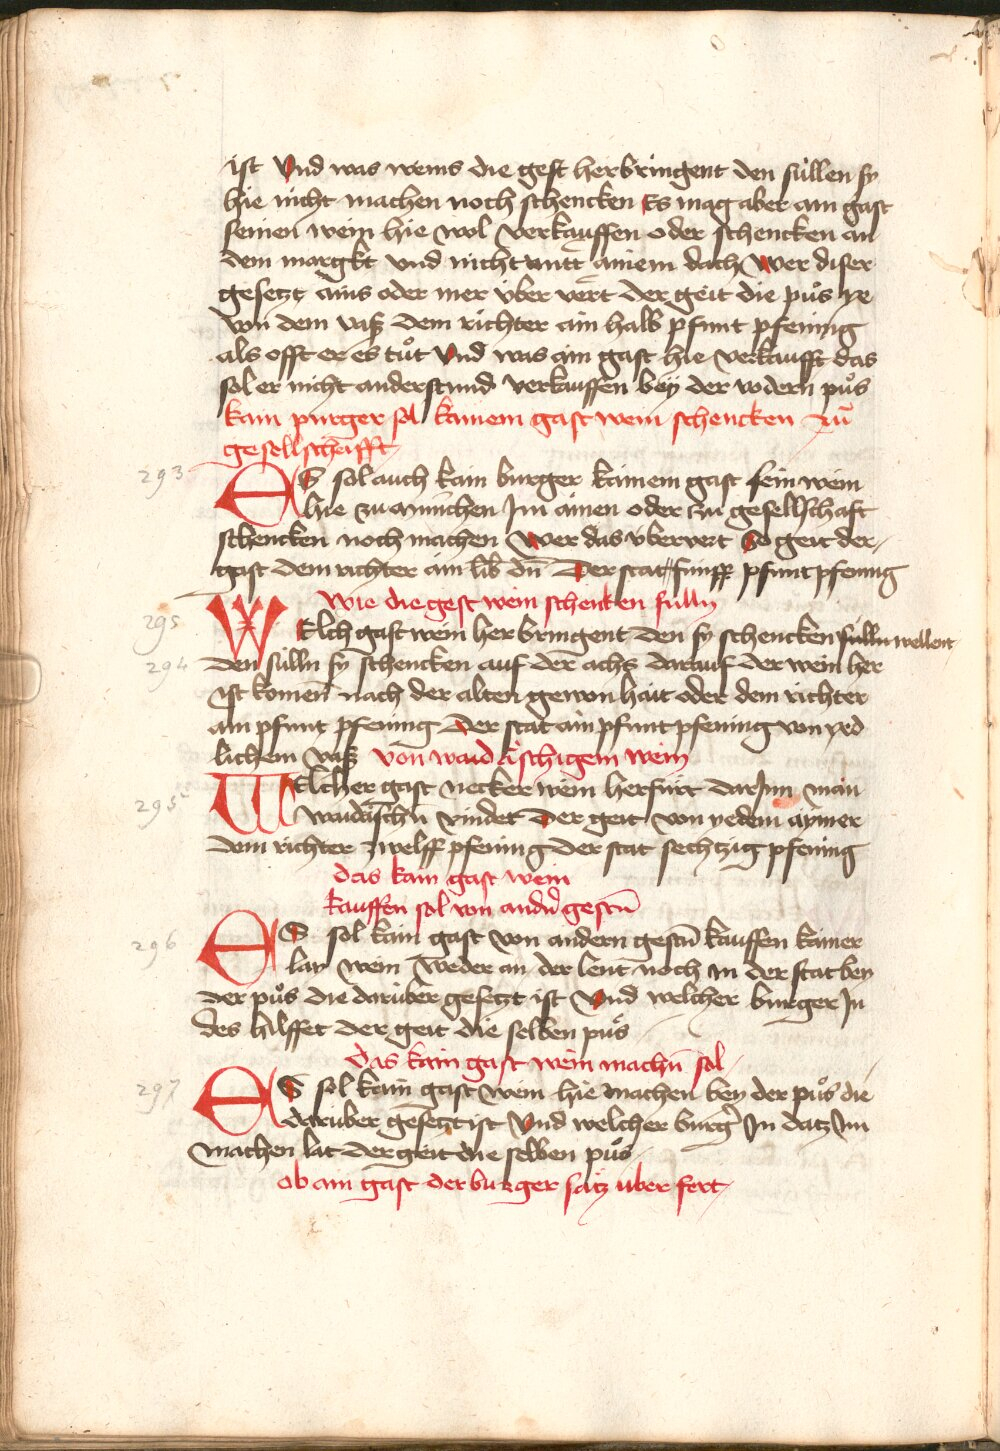 ist Vnd was weins die gest herbringent den sullen sy
hie nicht machen noch schencken Es mag aber ain gast
seinen wein hie wol verkauffen oder schencken an
dem margkt vnd nicht vntt̄ ainem dach Wer diser
gesetzt ains oder mer v̈ber vert der geit die půs ye
von dem vaß dem richter ain halb pfunt pfening
als offt er es tůt Vnd was ain gast hie verkaufft das
sol er nicht anderstund verkauffen bey der vodern půs
kain purger sol kainem gast wein schencken zū
gesellschafft
293 ES sol auch kain burger kainem gast sein wein
hie zu münchen Im ainen oder zu gesellschaft
schencken noch machen Wer das v̈bervert So geit der
gast dem richter ain lib dn̄ Der stat funff pfunt pfening
Wie die gest wein schencken sulln
295 WElch gast wein her bringent den sy schencken sulln wellent
294 den sulln sy schencken auf der achs darauf der wein her
ist komen nach der alten gewonhait oder dem richter
ain pfunt pfening Der stat ain pfunt pfening von yed
lichem vaß von waid äschigem wein
295 WElcher gast necker wein herfürt dar Inn man
waidäschn̄ vindet Der geit von yedem aymer
dem richter zwelff pfening der stat sechtzig pfening
das kain gast wein
kauffen sol von andn̄ gestn̄
296 ES sol kain gast von andern gestn̄ kauffen kainer
lay wein weder an der lent noch in der stat bey
der půs die darüber gesetzt ist Vnd welcher burger In
des hilffet der geit die selben půs
das kain gast wein machn̄ sol
297 ES sol kain gast wein hie machen bey der půs die
darüber gesetzt ist Vnd welcher burgr̄ In datz Im
machen lat der geit die selben půs
ob ain gast der burger sätz uber fert